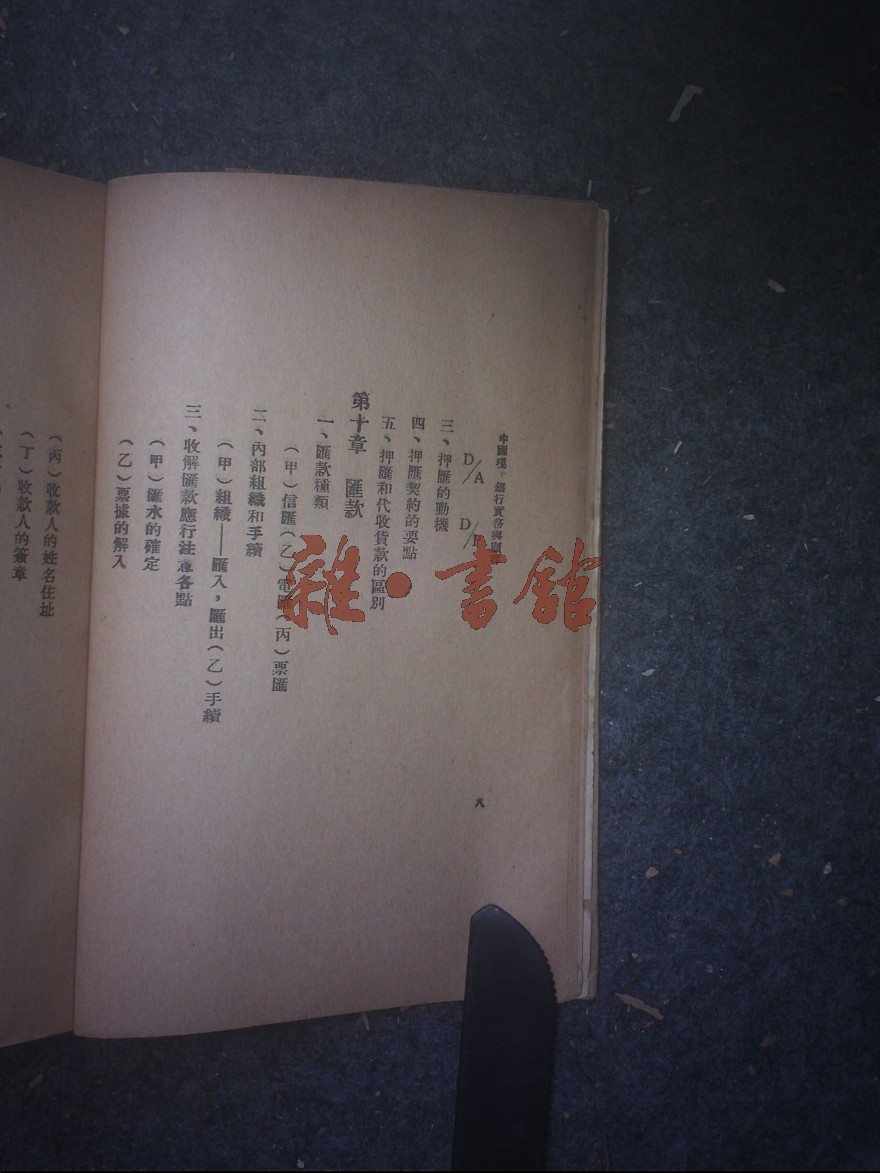 中國現 銀行實務與
D/A D/P
三、押匯的動機
四、押匯契約的要點
五、押匯和代收貨款的區別
第十章 匯款
一、匯款種類
(甲)信匯(乙)電匯(丙)票匯
二、內部組織和手續
(甲)組織——匯入，匯出(乙)手續
三、收解匯款應行注意各點
(甲)匯水的確定
(乙)票據的解入
(丙)收款人的姓名住址
(丁)收款人的簽章
八
雜·書館